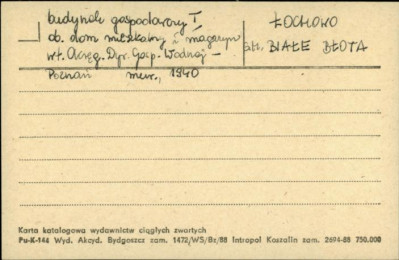 budynek gospodarczy I
ob. dom mieszkalny i magazyn
wł. Okręg. Dyr. Gosp. Wodnej -
Poznań mur., 1940
ŁOCHOWO
BIAŁE BŁOTA
Karta katalogowa wydawnictw ciągłych zwartych
Pu-K-144 Wyd. Akcyd. Bydgoszcz zam. 1472/WS/Bz/88 Intropol Koszalin zam. 2694-88 750.000